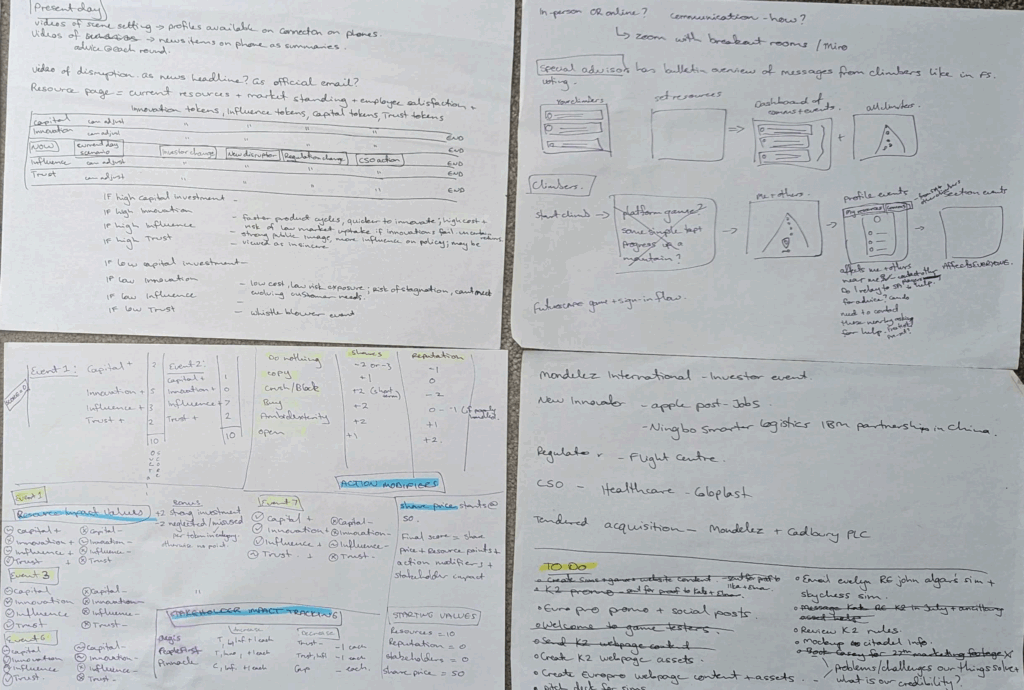 Present day
videos of scene setting → profiles available on connection on phones.
videos of → news items on phone as summaries.
advice @ each round.
video of disruption. as news headline? as official email?
Resource page = current resources + market standing + employee satisfaction +
Innovation tokens, Influence tokens, Capital tokens, Trust tokens
capital can adjust " " " " END
Innovation can adjust " " " " END
NOW current day scenario Investor change New disruptor Regulation change CSO action END
Influence can adjust " " " " END
Trust can adjust " " " " END
IF high capital investment -
IF high Innovation
IF high Influence
IF high Trust
- faster product cycles, quicker to innovate; high cost +
risk of low market uptake if innovations fail uncertain returns
- strong public image, more influence on policy; may be
viewed as insincere
IF low capital investment -
IF low Innovation
IF low Influence
IF low Trust
- low cost, low risk exposure; risk of stagnation, can't meet
evolving customer needs.
- whistle blower event
In person OR online? communication - how?
↳ zoom with breakout rooms / miro
Special advisors has bulletin overview of messages from climbers like in FS.
voting.
Your climbers
set resources
Dashboard of
comms + events
All climbers
⇒ +
Climbers.
start climb →
platform game?
some simple tap +
progress up a
mountain?
me + others
Profile events
Section events
affects me + others
for advice?
need to contact
those nearby asking
for help.
AFFECTS EVERYONE.
Futurescape game + sign-in flow.
Event 1: Capital + 2
Innovation + 5
Influence + 3
Trust + 2
10
Event 2:
Capital + 1
Innovation + 0
Influence + 7
Trust + 2
10
Shares Reputation
Do nothing -2 or -3 -1
Copy +1 0
Crush/Block +2 (short term) -2
Buy +2 0 - -1 (if poorly handled)
Ambidexterity +2 +1
Open +1 +2
ACTION MODIFIERS
Event 1
Resource Impact Values
Capital + Capital -
Innovation + Innovation -
Influence + Influence -
Trust + Trust -
Bonus
+2 strong investment
-2 neglected/misused
per token category
otherwise no point
Capital + Capital -
Innovation + Innovation -
Influence + Influence -
Trust + Trust -
share price starts @
50.
Final score = share
price + Resource points +
action modifiers +
stakeholder impact
Event 3
Capital Capital -
Innovation Innovation -
Influence Influence -
Trust Trust -
STAKEHOLDER IMPACT TRACKING
Increase Decrease
Aegis T, Inf + 1 each Trust - 1 each
PeopleFirst Trust, Inf - 1 each
Pinnacle C, Inf + 1 each - each.
STARTING VALUES
Resources = 10
Reputation = 0
stakeholders = 0
share price = 50
Capital Capital -
Innovation Innovation -
Influence Influence -
Trust Trust -
Mondelez International - Investor event.
New Innovator - apple post-Jobs.
- Ningbo Smarter logistics 18m partnership in China.
Regulator - Flight Centre.
CSO - Healthcare - Coloplast
Tendered acquisition - Mondelez + Cadbury PLC
TO DO
• Create sims + games website content
• K2 promo - out for proof to
• Euro pro promo + social posts
• Welcome to game testers.
• Send K2 webpage content
• Create K2 webpage assets.
• Create Europro webpage content + assets.
• pitch deck for sims
• Email evelyn RE john algars sim +
skychess sim.
• Message Kate RE K2 in July + ancillary
asset help
• Review K2 rules.
• mockup to citadel info.
• Book for 27th marketing footage
problems/challenges our things solve +
what is our credibility?